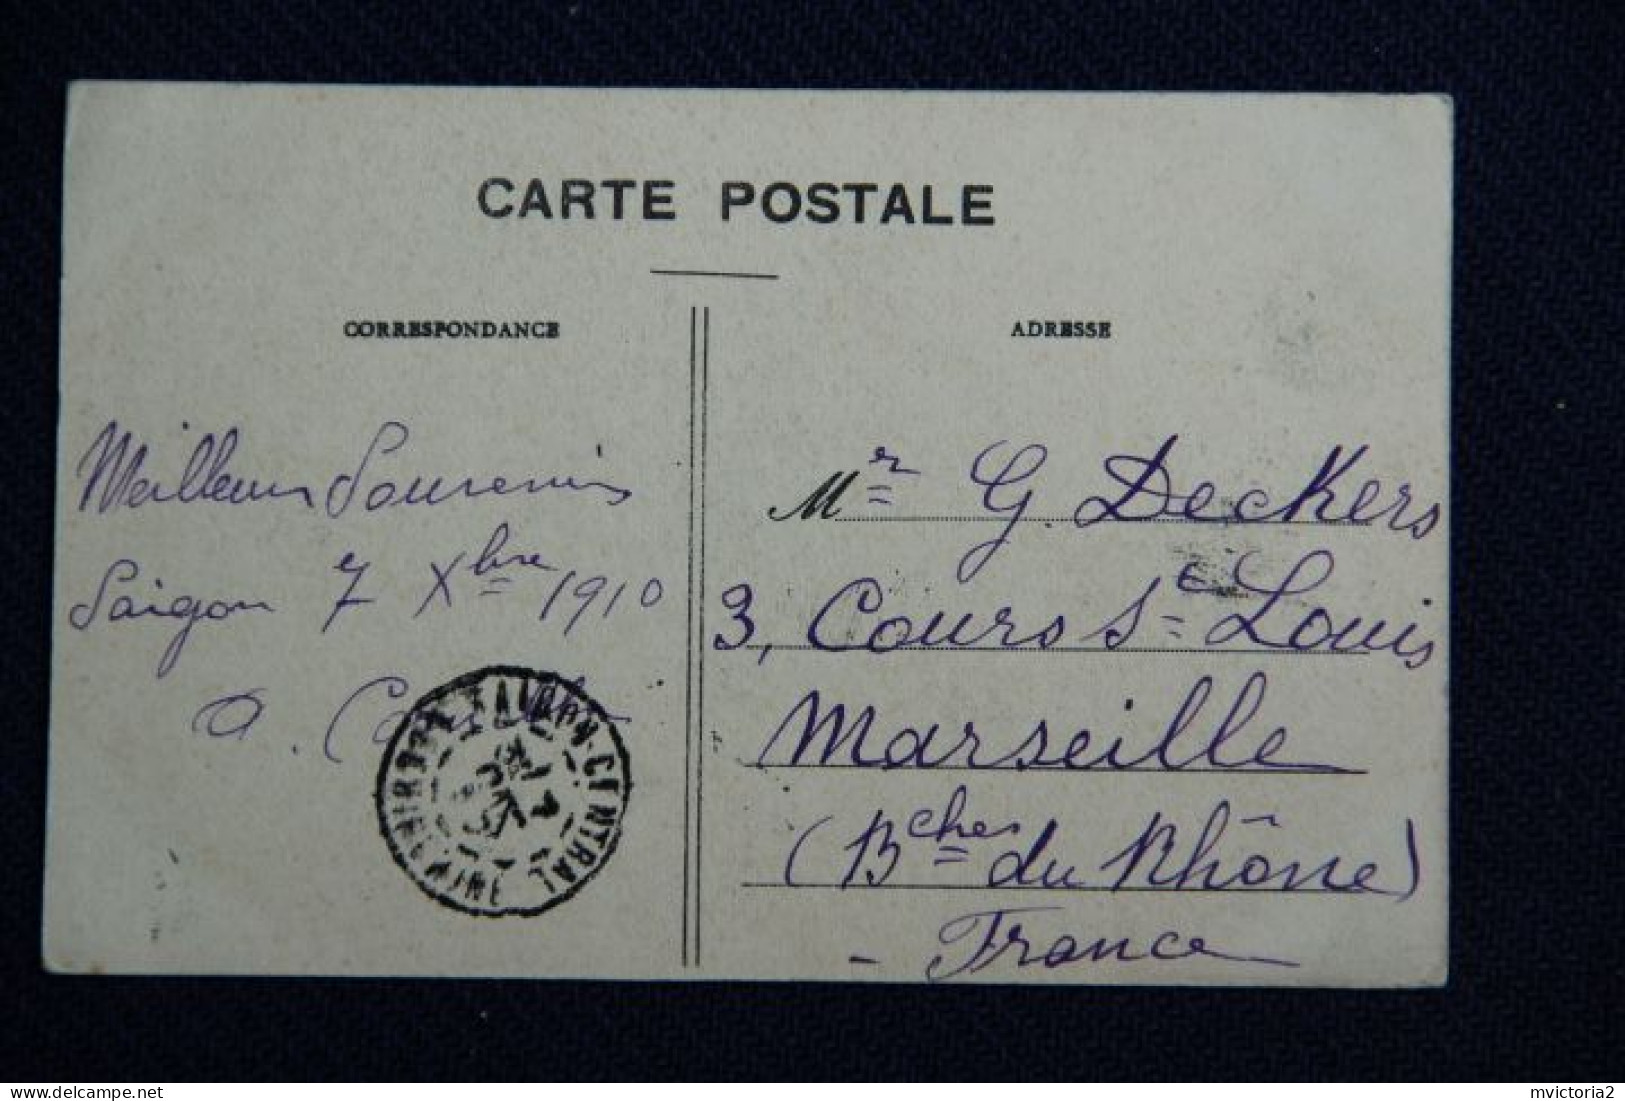 CARTE POSTALE
CORRESPONDANCE
ADRESSE
Meilleurs Souvenirs
Saigon 7 Xbre 1910
a.
SAIGON-CENTRAL
COCHINCHINE
Mr G. Deckers
3, Cours St Louis
Marseille
(Bches du Rhône)
- France
mvictoria2